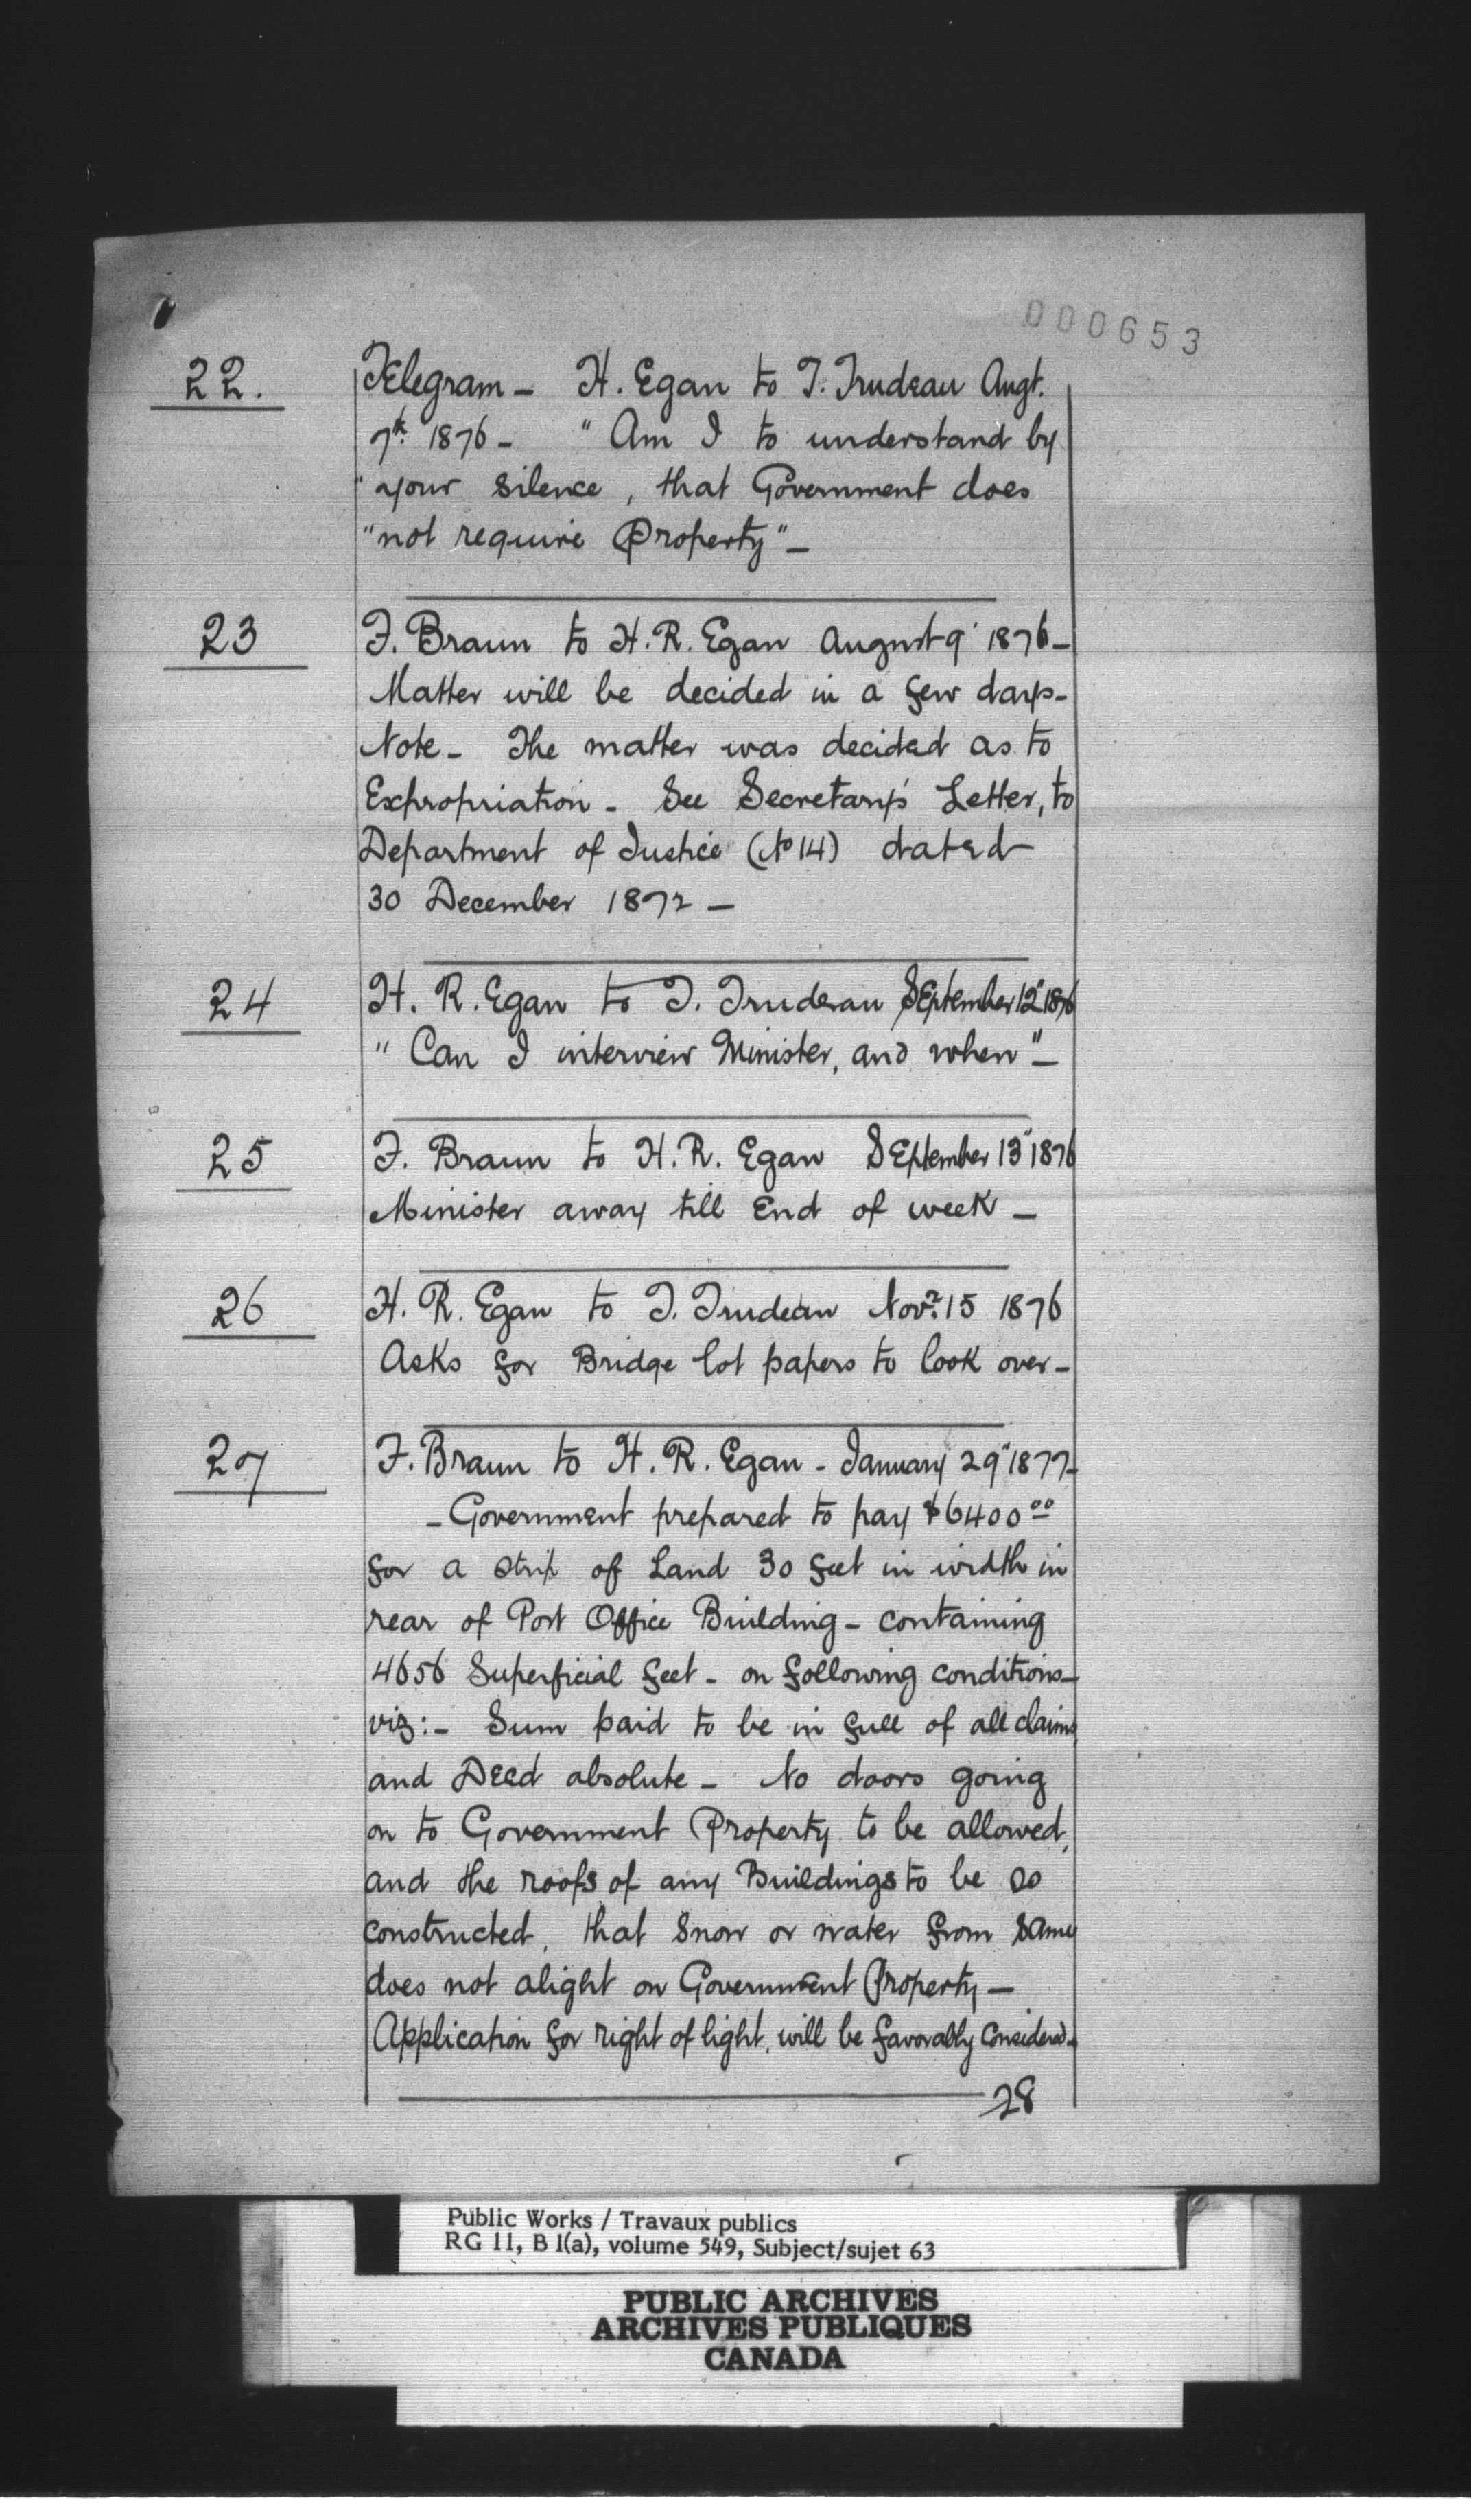 000653
22. Telegram - H. Egan to T. Trudeau Augt.
7th 1876 - " Am I to understand by
" your silence, that Government does
" not require Property" -
23 F. Braun to H. R. Egan August 9" 1876 -
Matter will be decided in a few days -
Note - The matter was decided as to
Expropriation - See Secretary's Letter, to
Department of Justice (No 14) dated
30 December 1872 -
24 H. R. Egan to T. Trudeau September 12" 1876
" Can I interview Minister, and when" -
25 F. Braun to H. R. Egan September 13" 1876
Minister away till End of week -
26 H. R. Egan to T. Trudeau Novr. 15 1876
Asks for Bridge lot papers to look over -
27 F. Braun to H. R. Egan - January 29" 1877 -
- Government prepared to pay $6400 00
for a strip of Land 30 feet in width in
rear of Post Office Building - containing
4656 Superficial feet - on following conditions -
viz: - Sum paid to be in full of all claims
and Deed absolute - No doors going
on to Government Property to be allowed,
and the roofs of any Buildings to be so
constructed, that snow or water from same
does not alight on Government Property -
Application for right of light, will be favorably considered -
28
Public Works / Travaux publics
RG 11, B 1(a), volume 549, Subject/sujet 63
PUBLIC ARCHIVES
ARCHIVES PUBLIQUES
CANADA